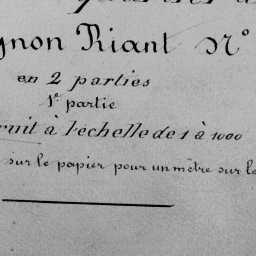 gnon Riant N°
en 2 parties
1e partie
ruit à l'échelle de 1 à 1000
sur le papier pour un mètre sur le